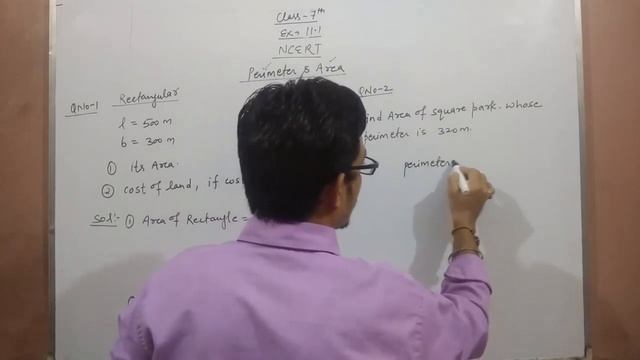 Class-7th
Ex-11.1
NCERT
Perimeter & Area
QNO-1 Rectangular
l = 500 m
b = 300 m
① Its Area.
② cost of land, if cos
Sol:- ① Area of Rectangle =
QNO-2
ind Area of square park. whose
perimeter is 320 m.
perimeter